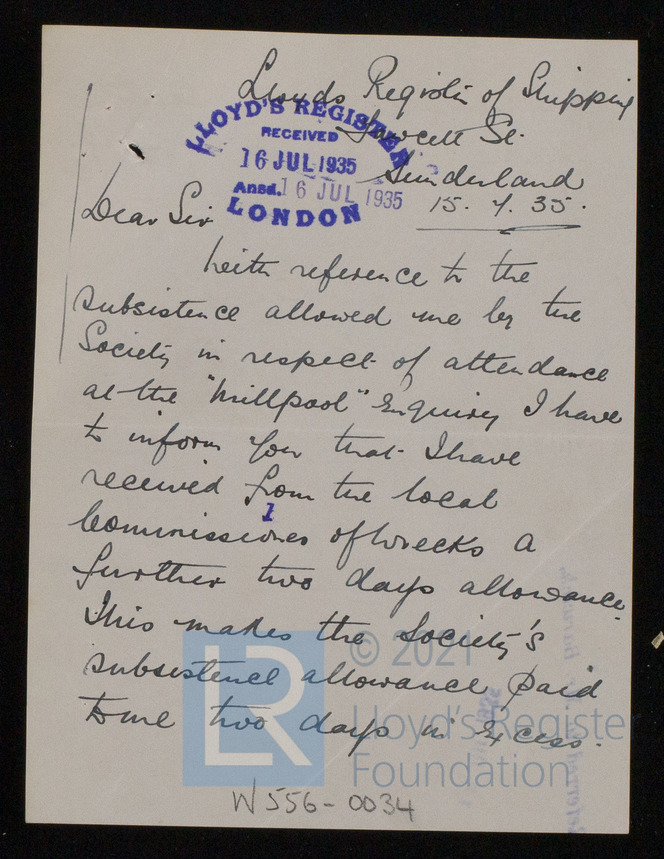 Lloyds Register of Shipping
Fawcett St.
Sunderland
15. 7. 35.
LLOYD'S REGISTER
RECEIVED
16 JUL 1935
Ansd. 16 JUL 1935
LONDON
Dear Sir
With reference to the
subsistence allowed me by the
Society in respect of attendance
at the "Millpool" Enquiry I have
to inform you that I have
received from the local
1
Commissioner of Wrecks a
further two days allowance.
This makes the Society's
subsistence allowance paid
to me two days in excess.
LR
© 2021
Lloyd's Register
Foundation
W556-0034